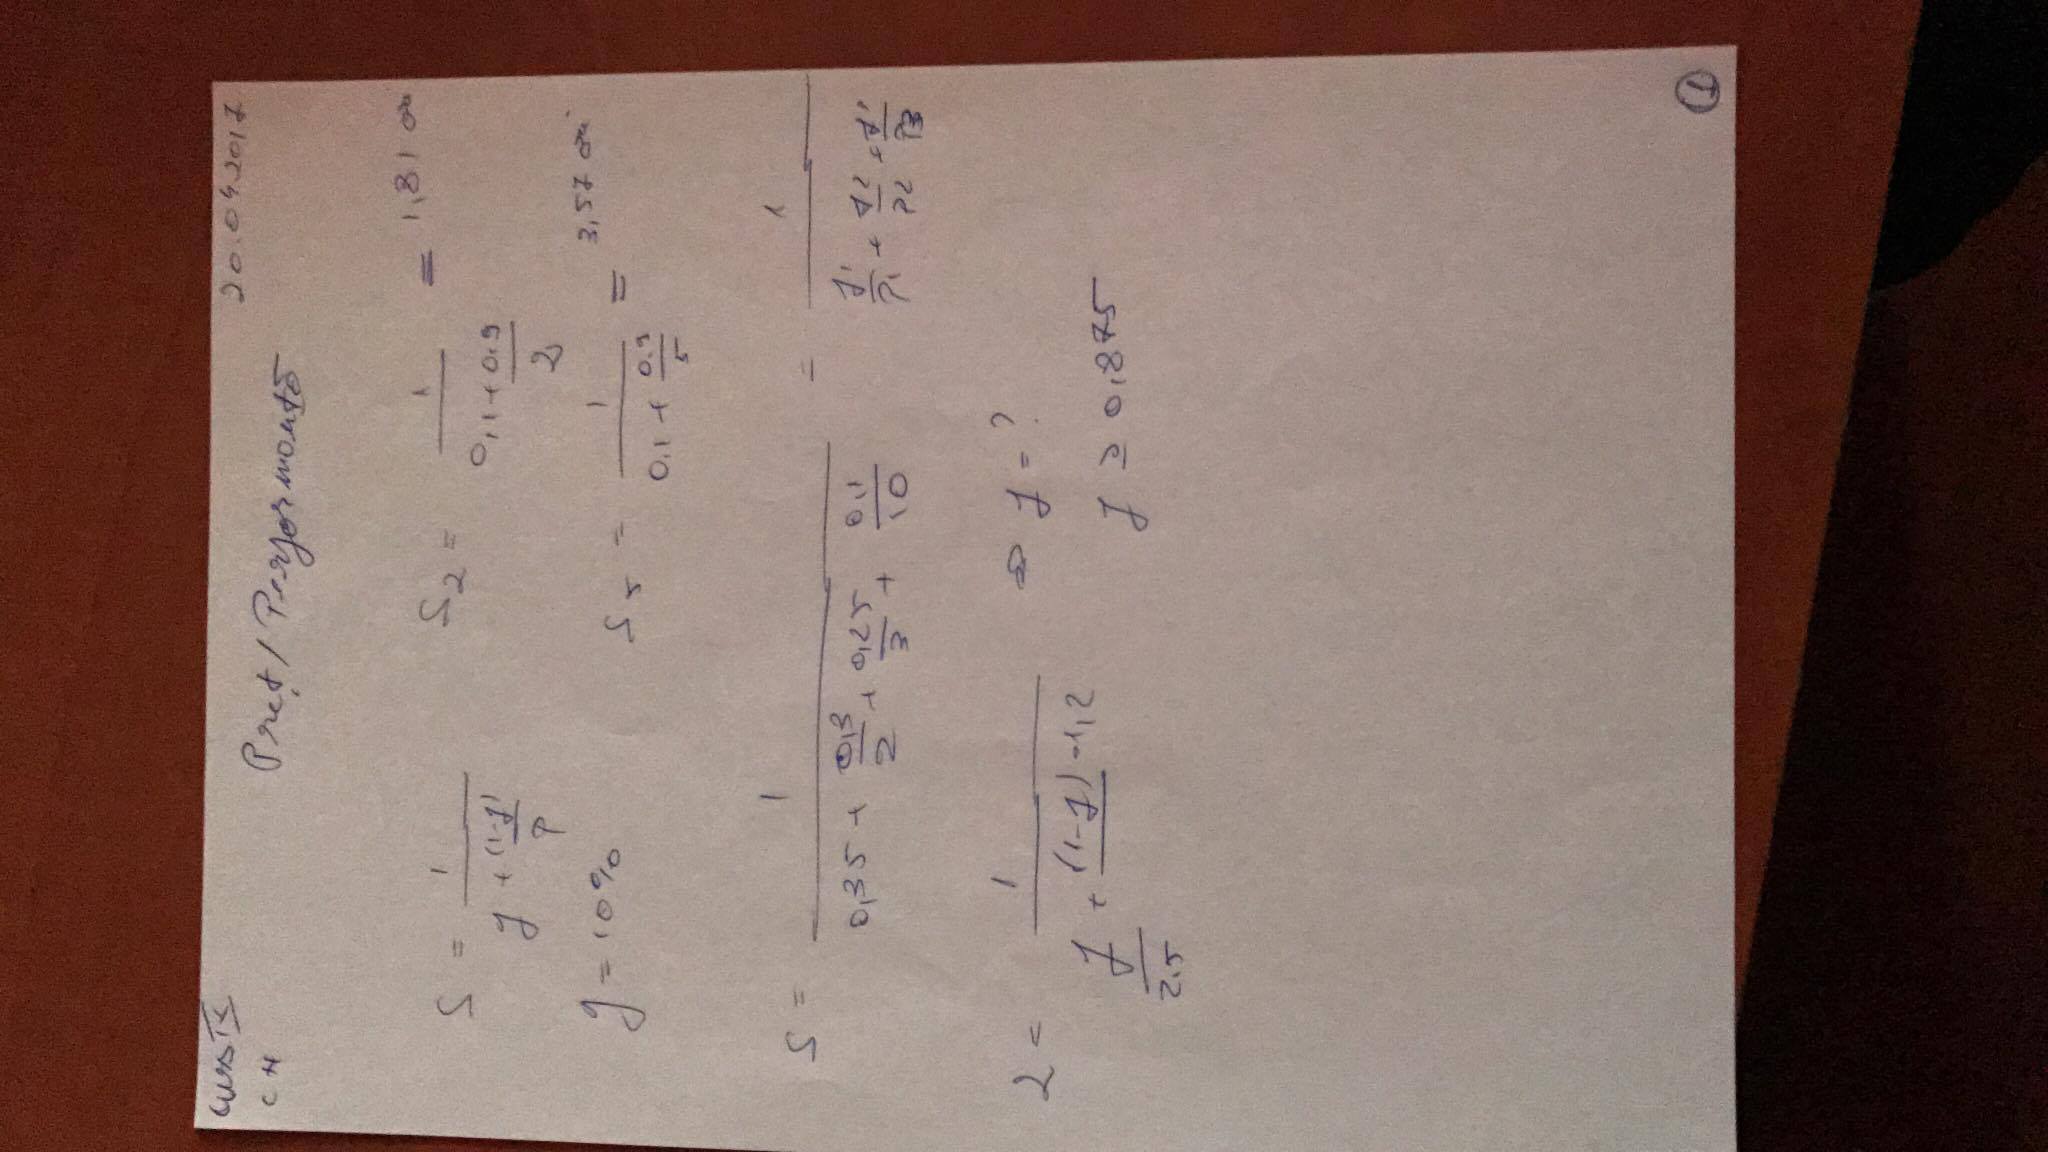 Curs IX 20.04.2017
CN Preț / Performanță
S = 1 / (f + (1-f)/P) S2 = 1 / (0,1 + 0,9/2) = 1,81 ori
f = 10% S5 = 1 / (0,1 + 0,9/5) = 3,57 ori
S = 1 / (0,35 + 0,3/2 + 0,25/3 + 0,1/10) = 1 / (f1/P1 + f2/P2 + f3/P3)
2 < 1 / (f/2,5 + (1-f)·1,2) f = ?
f ≥ 0,875
1